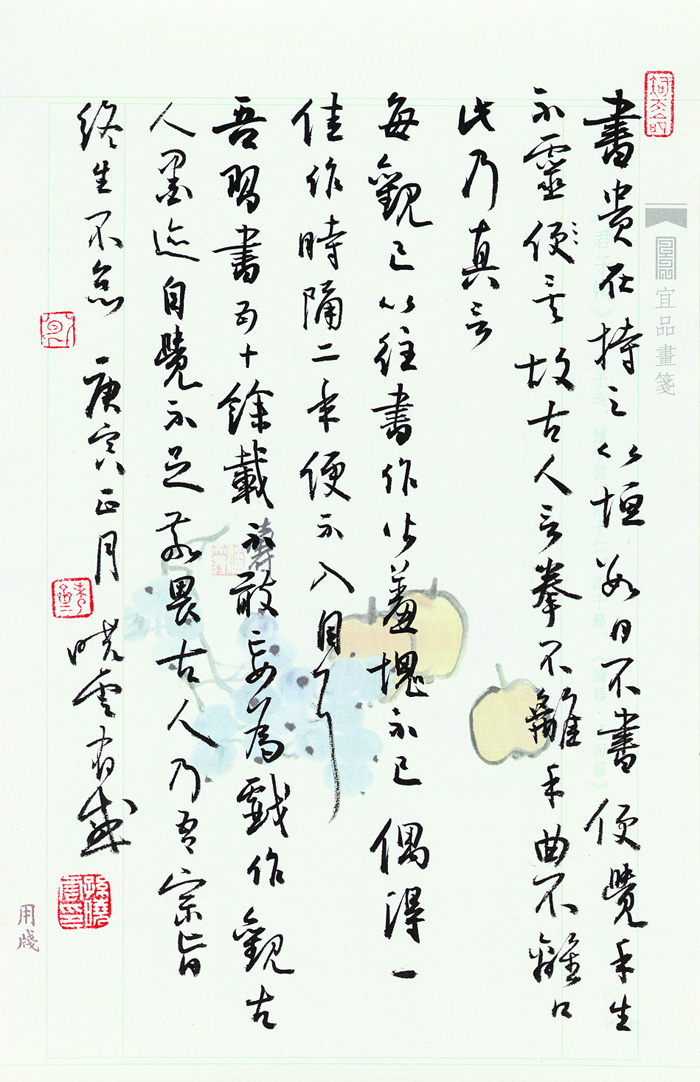 宜品畫箋
書貴在持之以恒數日不書便覺手生
不靈便矣故古人言拳不離手曲不離口
此乃真言
每觀已以往書作皆羞愧不已偶得一
佳作時隔二年便不入目了
吾習書五十餘載不敢妄為戲作觀古
人墨迹自覺不足敬畏古人乃吾宗旨
終生不怠 庚寅正月 曉雲有感
壽
用牋